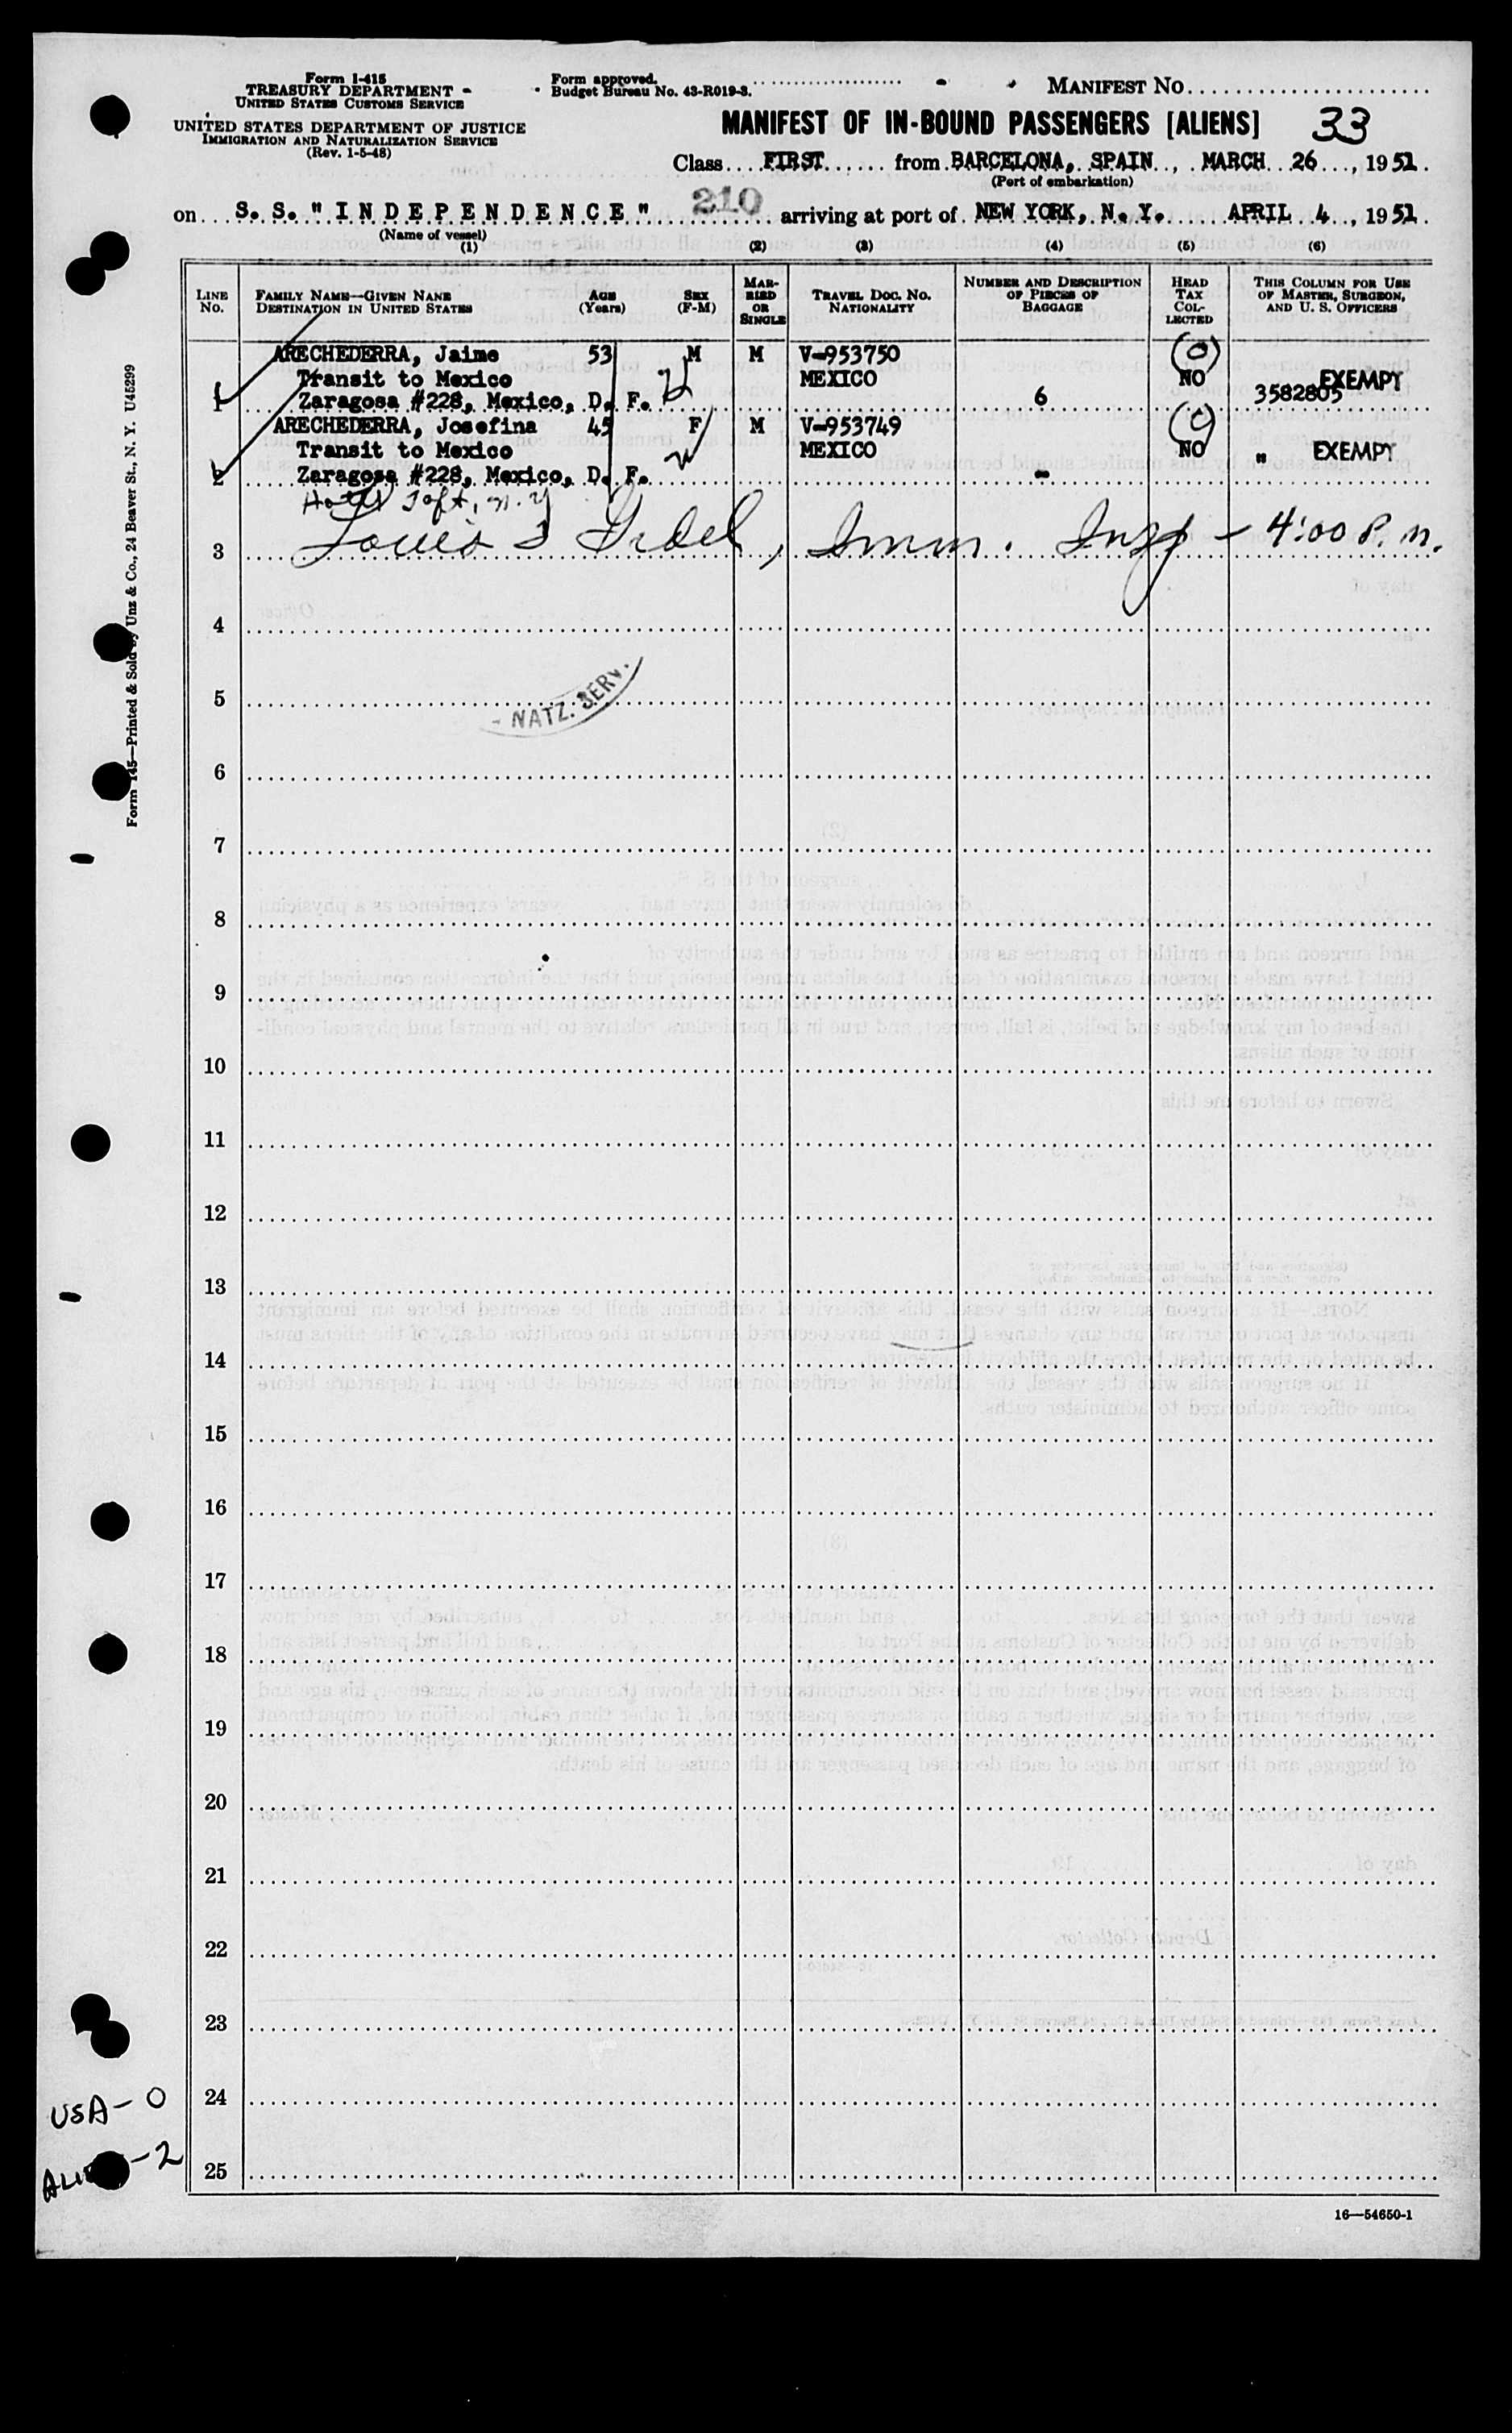 Form I-415
TREASURY DEPARTMENT -
UNITED STATES CUSTOMS SERVICE
UNITED STATES DEPARTMENT OF JUSTICE
IMMIGRATION AND NATURALIZATION SERVICE
(Rev. 1-5-48)
Form approved.
Budget Bureau No. 43-R019-3.
MANIFEST NO.
MANIFEST OF IN-BOUND PASSENGERS [ALIENS] 33
Class FIRST from BARCELONA, SPAIN, MARCH 26, 1951.
(Port of embarkation)
on S. S. "INDEPENDENCE" 210 arriving at port of NEW YORK, N. Y. APRIL 4, 1951
(Name of vessel)
(1) (2) (3) (4) (5) (6)
LINE No. FAMILY NAME—GIVEN NAME DESTINATION IN UNITED STATES AGE (Years) SEX (F-M) MARRIED OR SINGLE TRAVEL DOC. NO. NATIONALITY NUMBER AND DESCRIPTION OF PIECES OF BAGGAGE HEAD TAX COLLECTED THIS COLUMN FOR USE OF MASTER, SURGEON, AND U. S. OFFICERS
ARECHEDERRA, Jaime 53 M M V-953750 (0)
Transit to Mexico MEXICO NO EXEMPT
1 Zaragosa #228, Mexico, D. F. 6 3582805
ARECHEDERRA, Josefina 45 F M V-953749
Transit to Mexico MEXICO NO " EXEMPT
2 Zaragosa #228, Mexico, D. F. -
Hotel Taft, N.Y
3 Imm. Insp - 4:00 P.M.
4
5
- NATZ. SERV.
6
7
8
9
10
11
12
13
14
15
16
17
18
19
20
21
22
23
24
25
USA - 0
- 2
16—54650-1
Form 145—Printed & Sold by Unz & Co., 24 Beaver St., N. Y. U45299